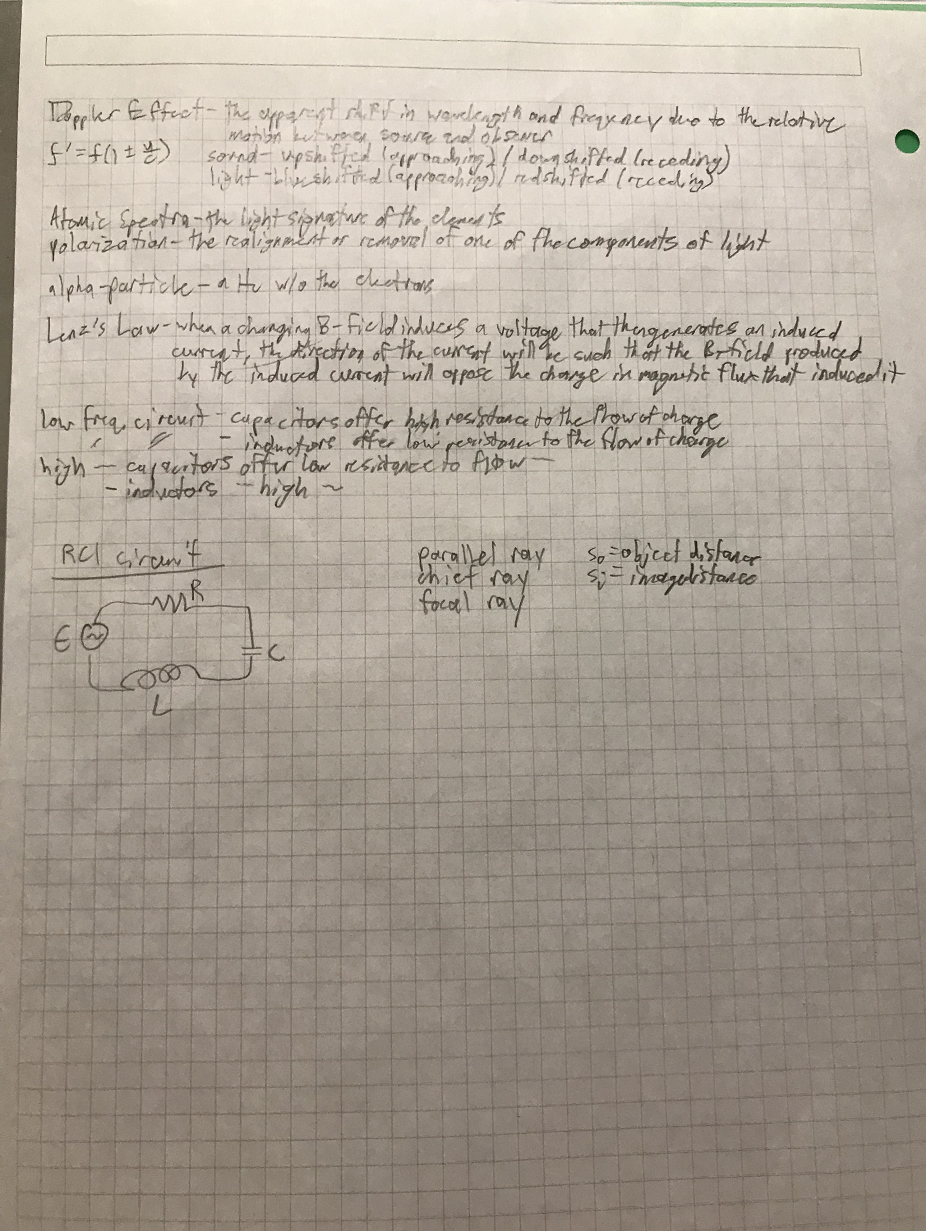 Doppler Effect - the apparent shift in wavelength and frequency due to the relative
motion between source and observer
f' = f(1 ± u/c) sound - upshifted (approaching) / downshifted (receding)
light - blueshifted (approaching) / redshifted (receding)
Atomic Spectra - the light signature of the elements
polarization - the realignment or removal of one of the components of light
alpha-particle - a He w/o the electrons
Lenz's Law - when a changing B-field induces a voltage that then generates an induced
current, the direction of the current will be such that the B-field produced
by the induced current will oppose the change in magnetic flux that induced it
low freq. circuit - capacitors offer high resistance to the flow of charge
- inductors offer low resistance to the flow of charge
high — capacitors offer low resistance to flow —
- inductors - high ~
RCl circuit
parallel ray s₀ = object distance
chief ray sᵢ = image distance
focal ray
R
E
C
L